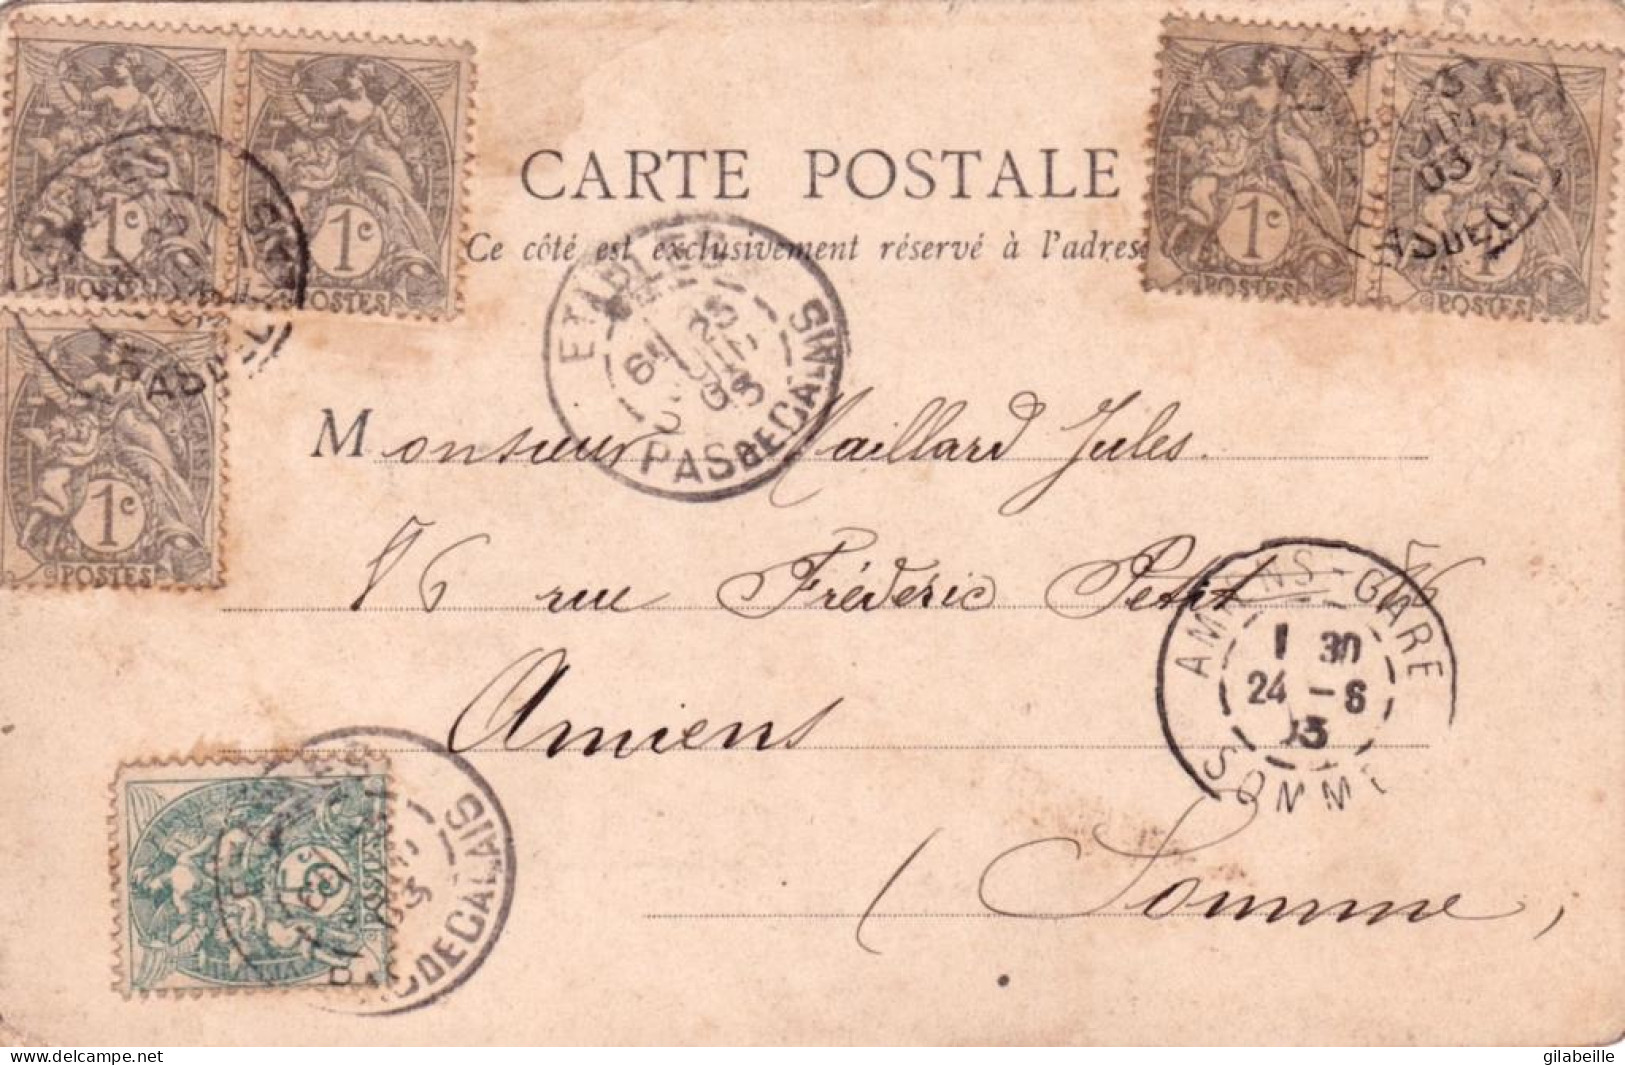 CARTE POSTALE
Ce côté est exclusivement réservé à l'adresse
1c
POSTES
1c
POSTES
1c
POSTES
1c
POSTES
1c
POSTES
ETAPLES
PAS DE CALAIS
03
Monsieur Maillard Jules.
76 rue Frédéric Petit 76
Amiens
(Somme,
AMIENS-GARE
1 30
24 -6
03
SOMME
5c
POSTES
PAS DE CALAIS
03
www.delcampe.net
gilabeille